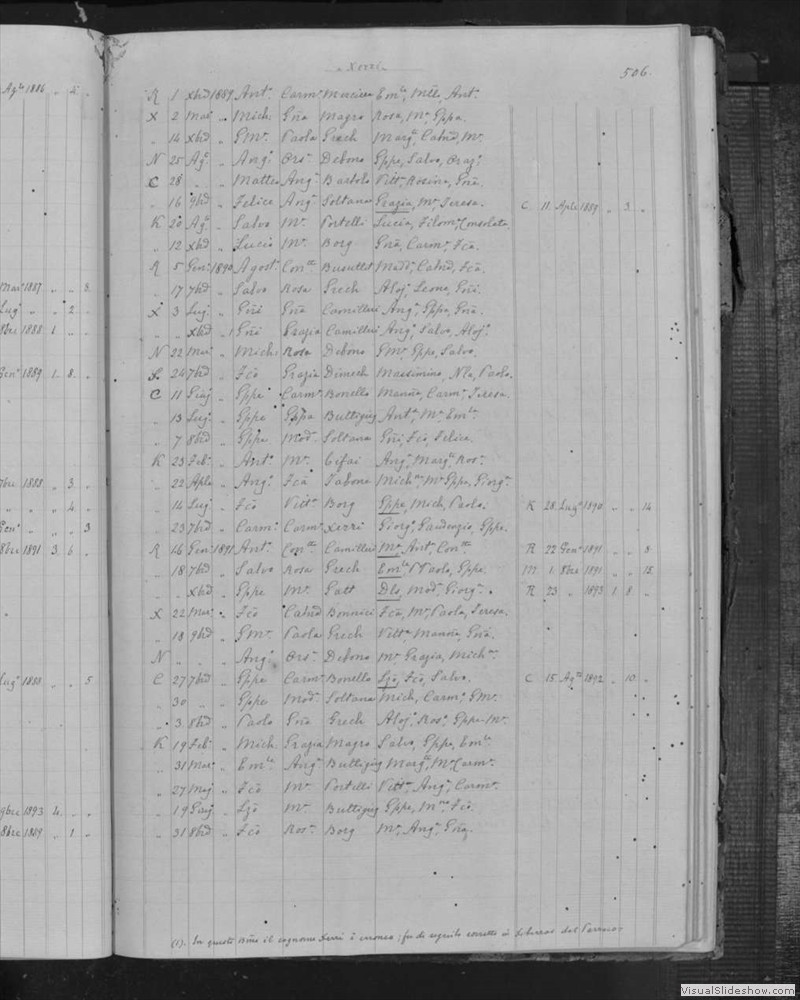 Xerri
506.
R 1 Xbre 1889 Ant. Carm. Emle, Ant.
X 2 Mar. " Mich. Gña Magro Rosa, Mª, Gppa.
" 14 Xbre " GMª Paola Grech Margª, Catnd, Mª
N 25 Agº " Angº Orsª Debono Gppe, Salvo, Orazº
C 28 " " Matteo Angª Bartolo Vittª, Rosina, Gña.
" 16 9bre " Felice Angª Soltana Grazia, Mª, Teresa. C 11 Aple 1889 " 3 "
K 20 Agº " Salvo Mª Portelli Lucia, Filomª, Consolata.
" 12 Xbre " Lucio Mª Borg Gña, Carmª, Fca.
R 5 Genº 1890 Agost. Conne Busuttil Madª, Catnd, Fca.
" 17 7bre " Salvo Rosa Grech Aloj. Leone, Gñi.
X 3 Lug. " Gñi Gña Camilleri Angª, Gppe, Gña.
" " Xbre " Gñi Grazia Camilleri Angª, Salvo, Alojª
N 22 Mar. " Mich. Rosa Debono GMª, Gppe, Salvo.
" 24 7bre " Fco Grazia Dimech Massimino, Nla, Paolo.
C 11 Giug " Gppe Carmª Bonello Manña, Carmª, Teresa.
" 13 Lug. " Gppe Gppa Buttigieg Antª, Mª, Emle
" 7 8bre " Gppe Modª Soltana Gñi, Fco, Felice.
K 23 Feb. " Antº Mª Cefai Angª, Margª, Rosª
" 22 Aple " Angº Fca Tabone Michna, Mª, Gppe, Giorgº
" 14 Lug. " Fco Vittª Borg Gppe, Mich, Paolo. K 28 Lugº 1890 " " 14
" 23 7bre " Carmº Carmª Xerri Giorgº, Gaudenzio, Gppe.
R 16 Genº 1891 Antº Conne Camilleri Mª, Antª, Conne R 22 Genº 1891 " " 8
" 18 7bre " Salvo Rosa Grech Emle, Paolo, Gppe. M 1 8bre 1891 " " 15
" " Xbre " Gppe Mª Gatt Dlo, Modº, Giorgº R 23 " 1893 1 8 "
X 22 Mar. " Fco Catnd Bonnici Fca, Mª, Paola, Teresa.
" 18 9bre " GMª Paola Grech Vittª, Manña, Gña.
N " " " Angº Orsª Debono Mª, Grazia, Michna
C 27 7bre " Gppe Carmª Bonello Lzo, Fco, Salvo. C 15 Agº 1892 " 10 "
" 30 " " Gppe Modª Soltana Mich, Carmº, GMª
" 3 8bre " Paolo Gña Grech Alojª, Rosª, Gppe Mª
K 19 Feb. " Mich. Grazia Magro Salvo, Gppe, Emle
" 31 Mar. " Emle Angª Buttigieg Margª, Mª Carmª
" 27 Mag " Fco Mª Portelli Vittª, Angª, Carmª
" 19 Giug. " Lzo Mª Buttigieg Gppe, Fco.
" 31 8bre " Fco Rosª Borg Mª, Angª, Gña
(1). In questo il cognome Xerri è erroneo; fu di seguito corretto del Parroco
Agº 1886 " 2 "
Marº 1887 " " 8
Lugº " " 2 "
8bre 1888 1 " "
Genº 1889 1 8 "
7bre 1888 " 3 "
" " " 4 "
Genº " " " 3
8bre 1891 3 6 "
Lugº 1888 " " 5
9bre 1893 4 " "
8bre 1889 " 1 "
VisualSlideshow.com